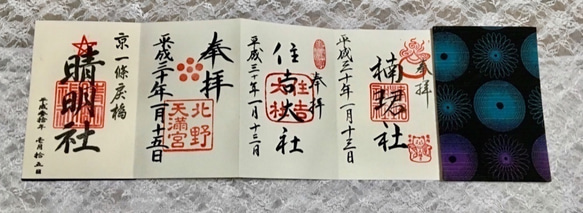 奉拝
楠珺社
平成三十年一月十三日
奉拝
住吉大社
平成三十年一月十三日
奉拝
北野
天満宮
平成三十年一月十五日
京一條戻橋
晴明社